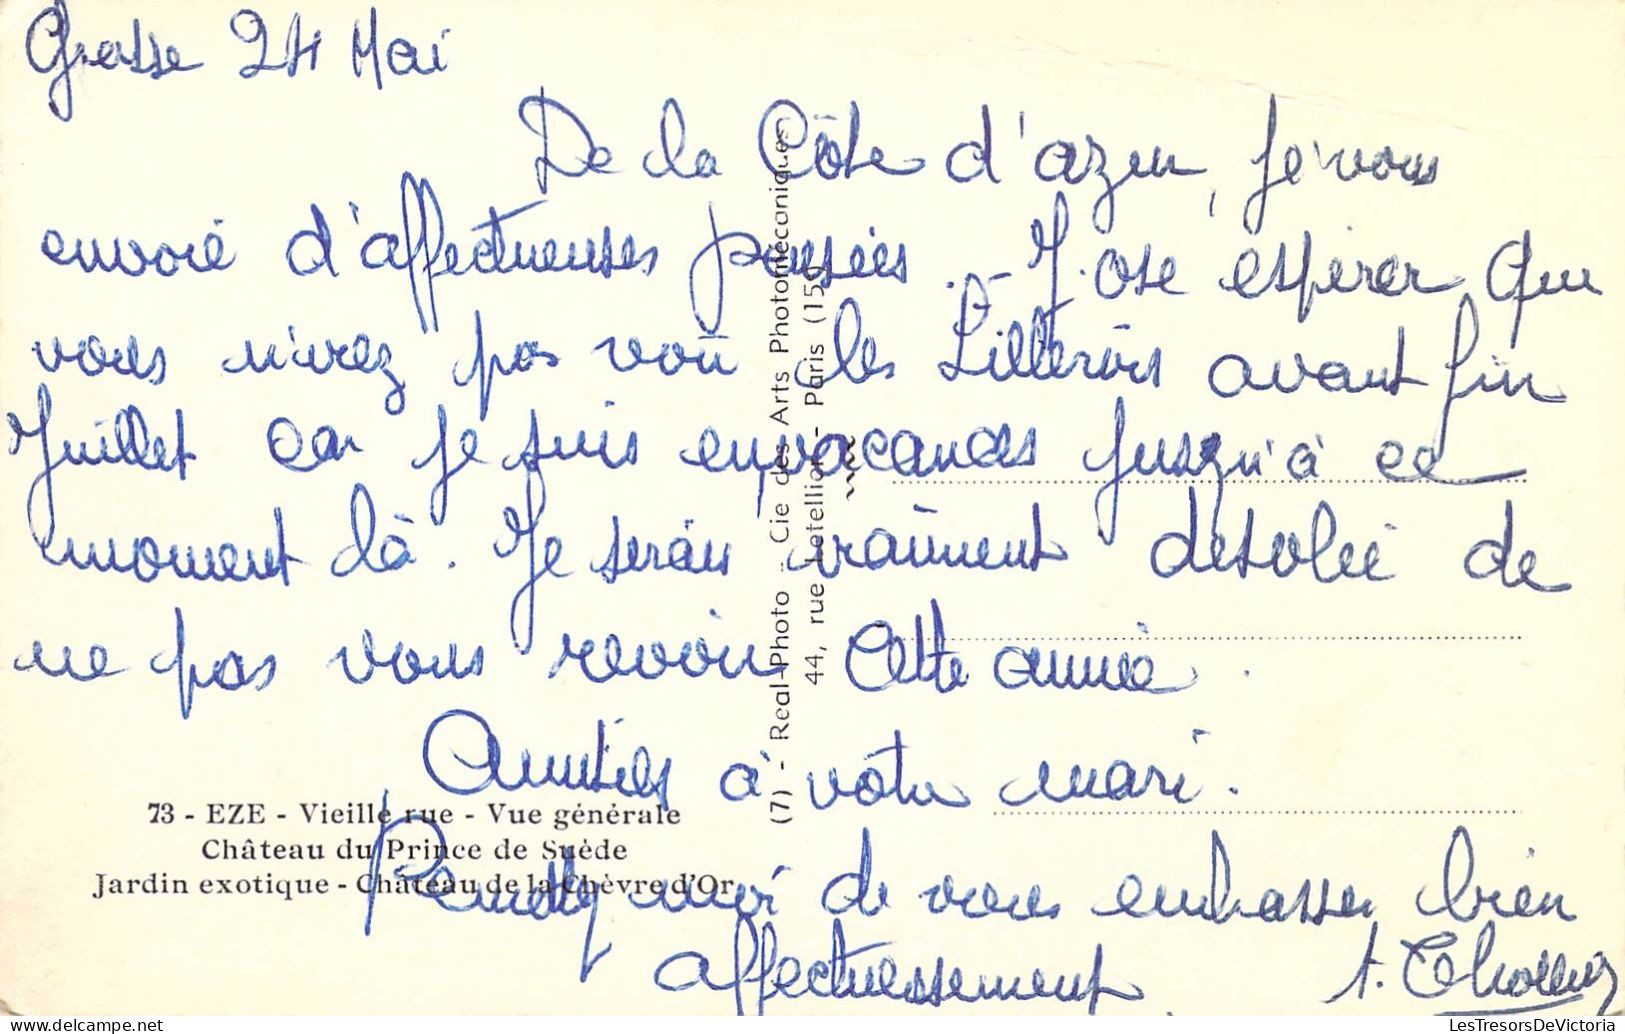 Grasse 24 Mai
De la Côte d'azur, je vous
envoie d'affectueuses pensées .- J'ose espérer que
vous n'irez pas voir les Lillerois avant fin
Juillet car je suis en vacances jusqu'à ce
moment là. Je serais vraiment désolée de
ne pas vous revoir cette année.
Amitiés à votre mari.
Permettez moi de vous embasser bien
affectuessement
73 - EZE - Vieille rue - Vue générale
Château du Prince de Suède
Jardin exotique - Château de la Chèvre d'Or
(7) - Real-Photo - Cie des Arts Photomécaniques
44, rue Letellier - Paris (15e)
LesTresorsDeVictoria